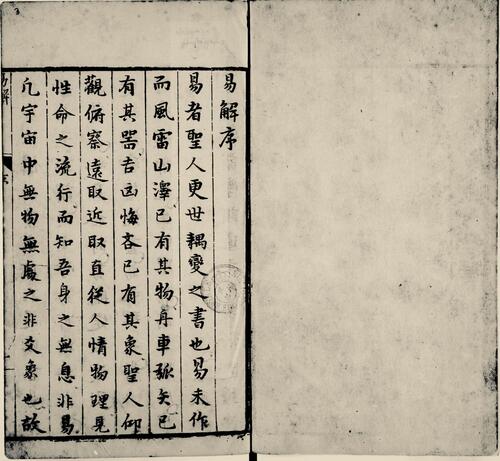 易解序
易者聖人更世耦變之書也易未作
而風雷山澤已有其物舟車弧矢已
有其器吉凶悔吝已有其象聖人仰
觀俯察遠取近取直從人情物理見
性命之流行而知吾身之無息非易
凡宇宙中無物無處之非爻象也故
易解
序